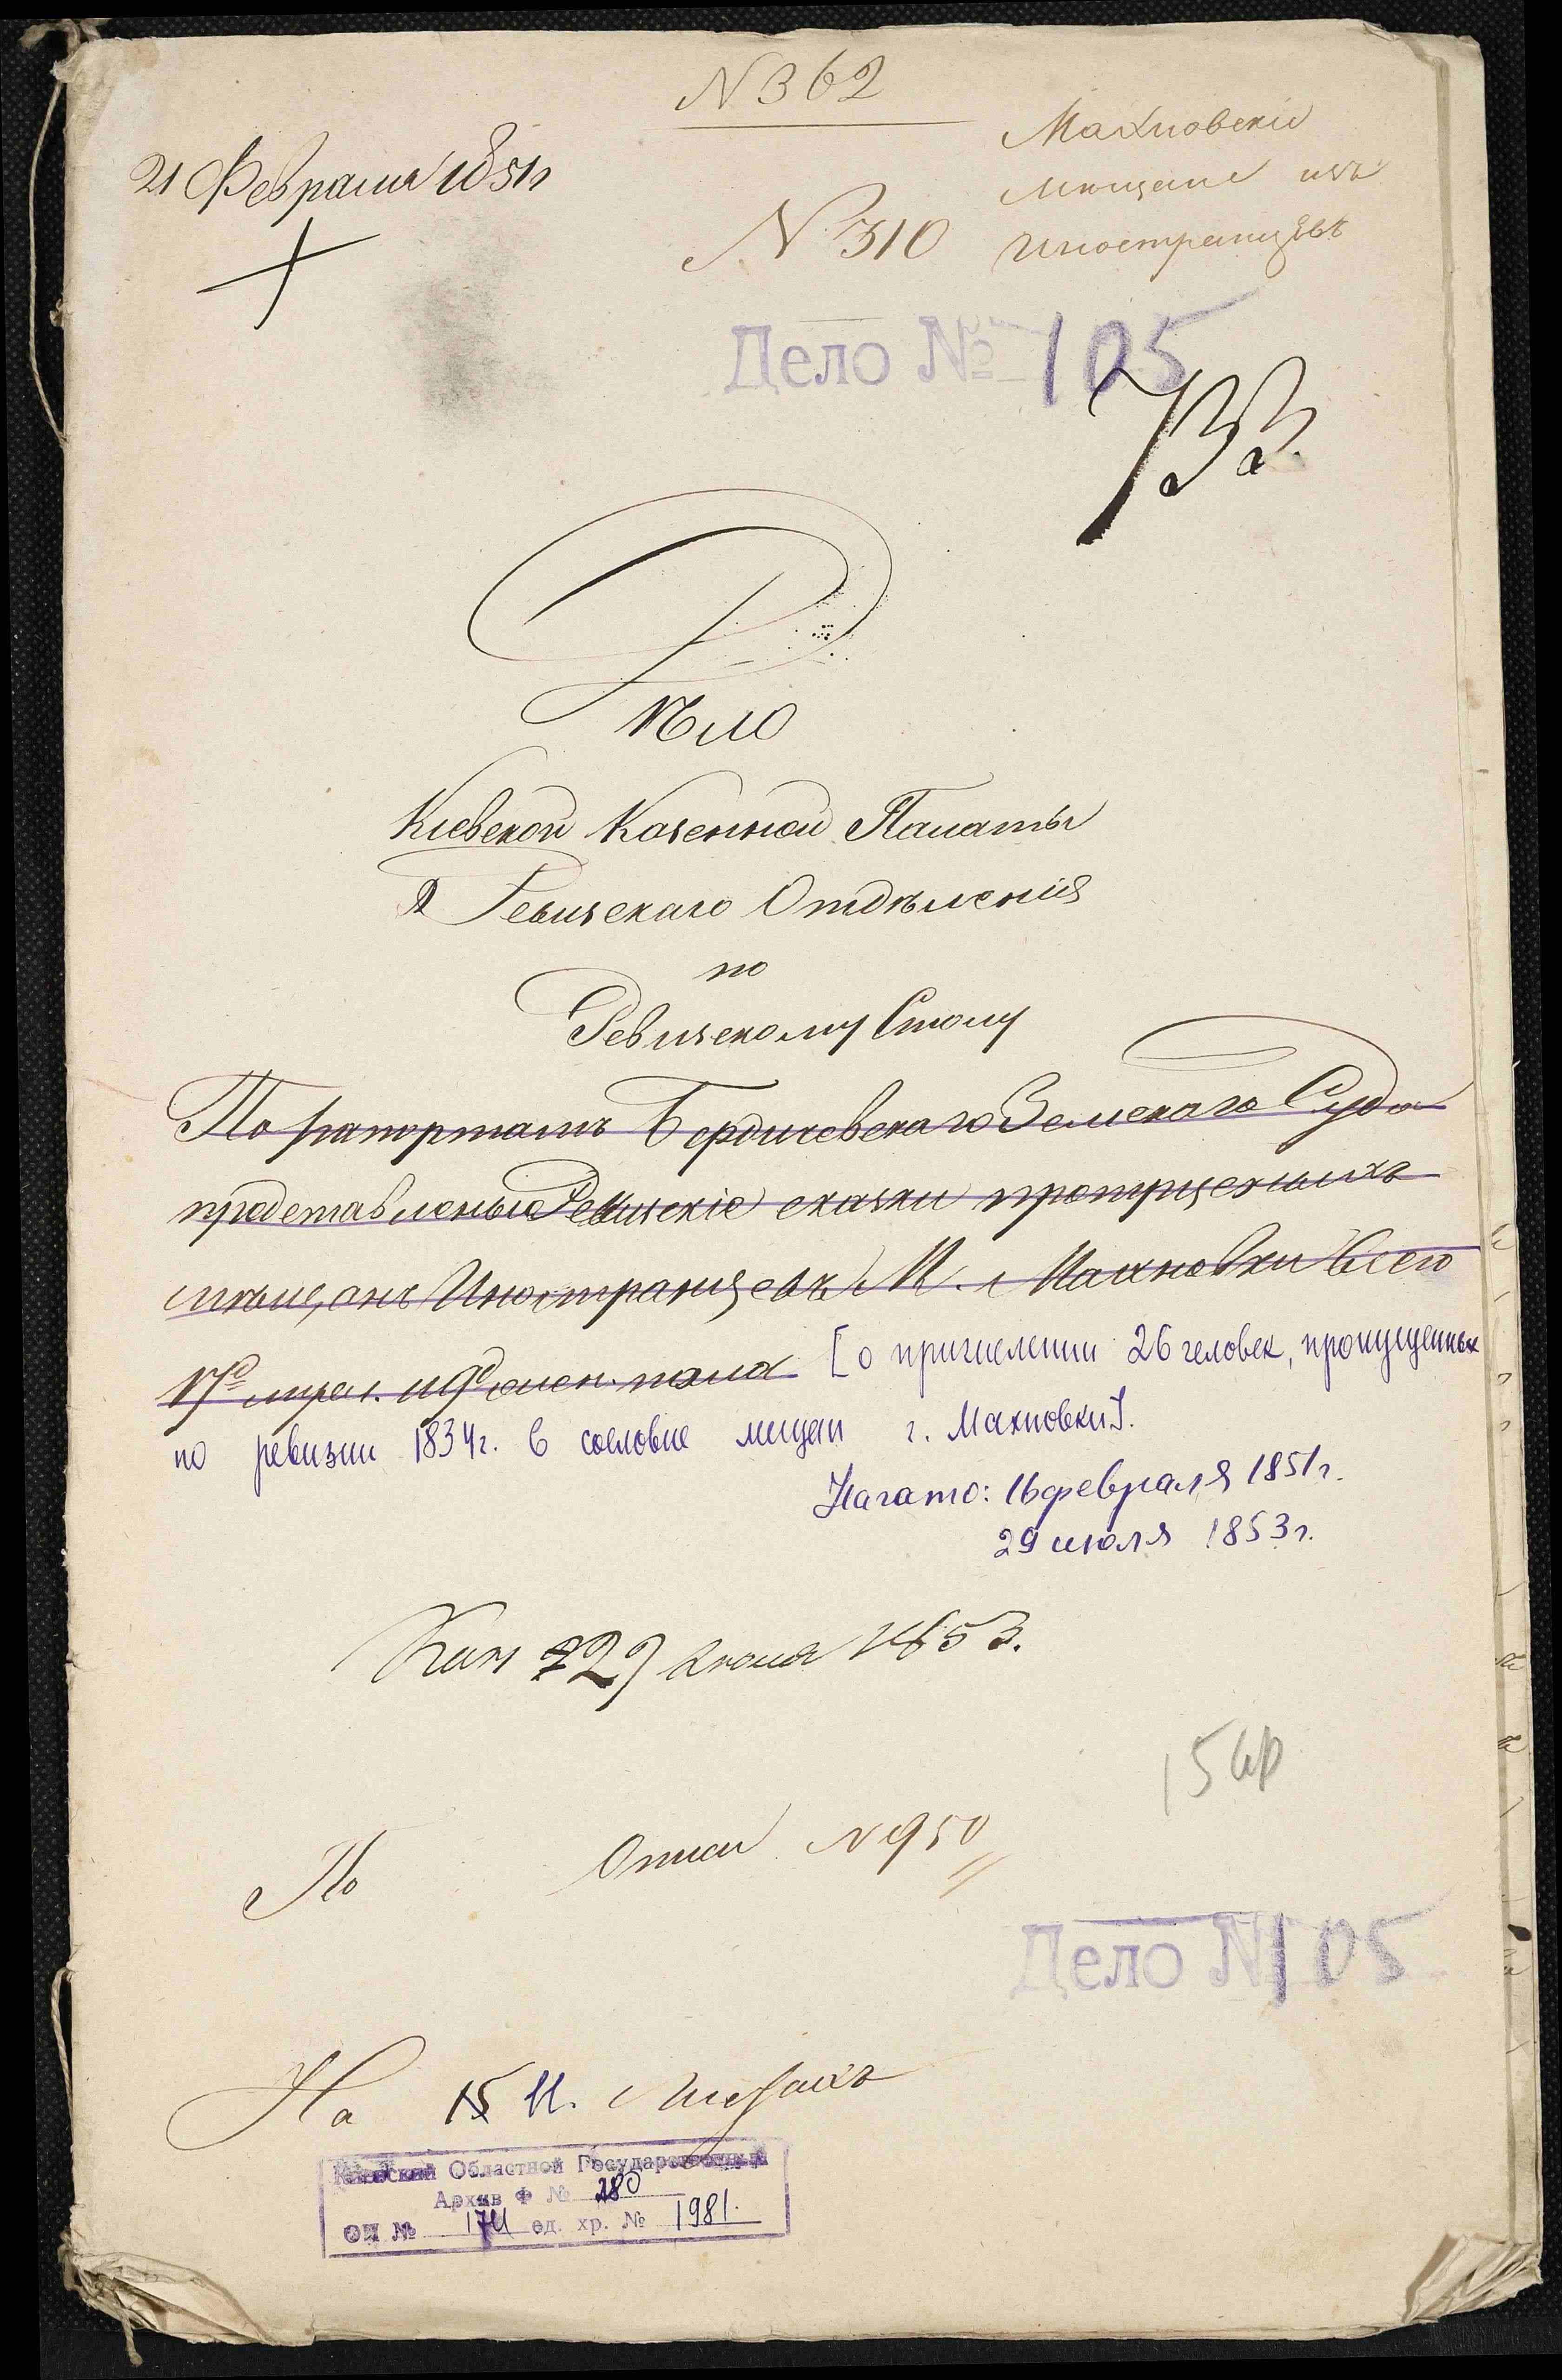 N 362
21 Февраля 1851 г
Махновскіе
мещане изъ
N 310
Иностранцевъ
Дело № 105
733.
Дѣло
Кіевской Казенной Палаты
Ревизскаго Отдѣленія
по
Ревизскому Столу
По рапортамъ Бердичевскаго Земскаго Суда
представленые Ревизскіе сказки пропущеныхъ
мѣщанъ Иностранцевъ М. Махновки Всего
17 муж. и 9 женск. пола [о причислении 26 человек, пропущенных
по ревизии 1834 г. в сословие мещан г. Махновки].
Начато: 16 февраля 1851 г.
29 июля 1853 г.
29 Июля 1853.
15 кр
По Описи N 950
Дело № 105
На 15 11. Листахъ
Киевский Областной Государственный
Архив Ф № 280
ОП № 174 ед. хр. № 1981.